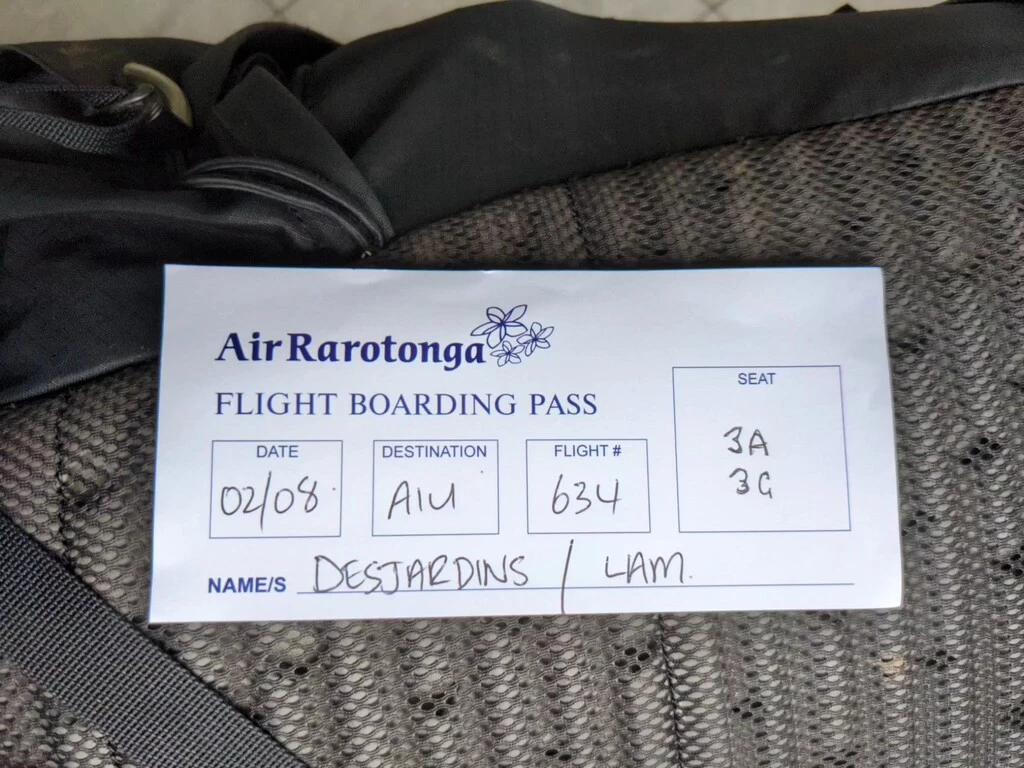 Air Rarotonga
FLIGHT BOARDING PASS
DATE
02/08
DESTINATION
AIU
FLIGHT #
634
SEAT
3A
3C
NAME/S DESJARDINS / LAM.